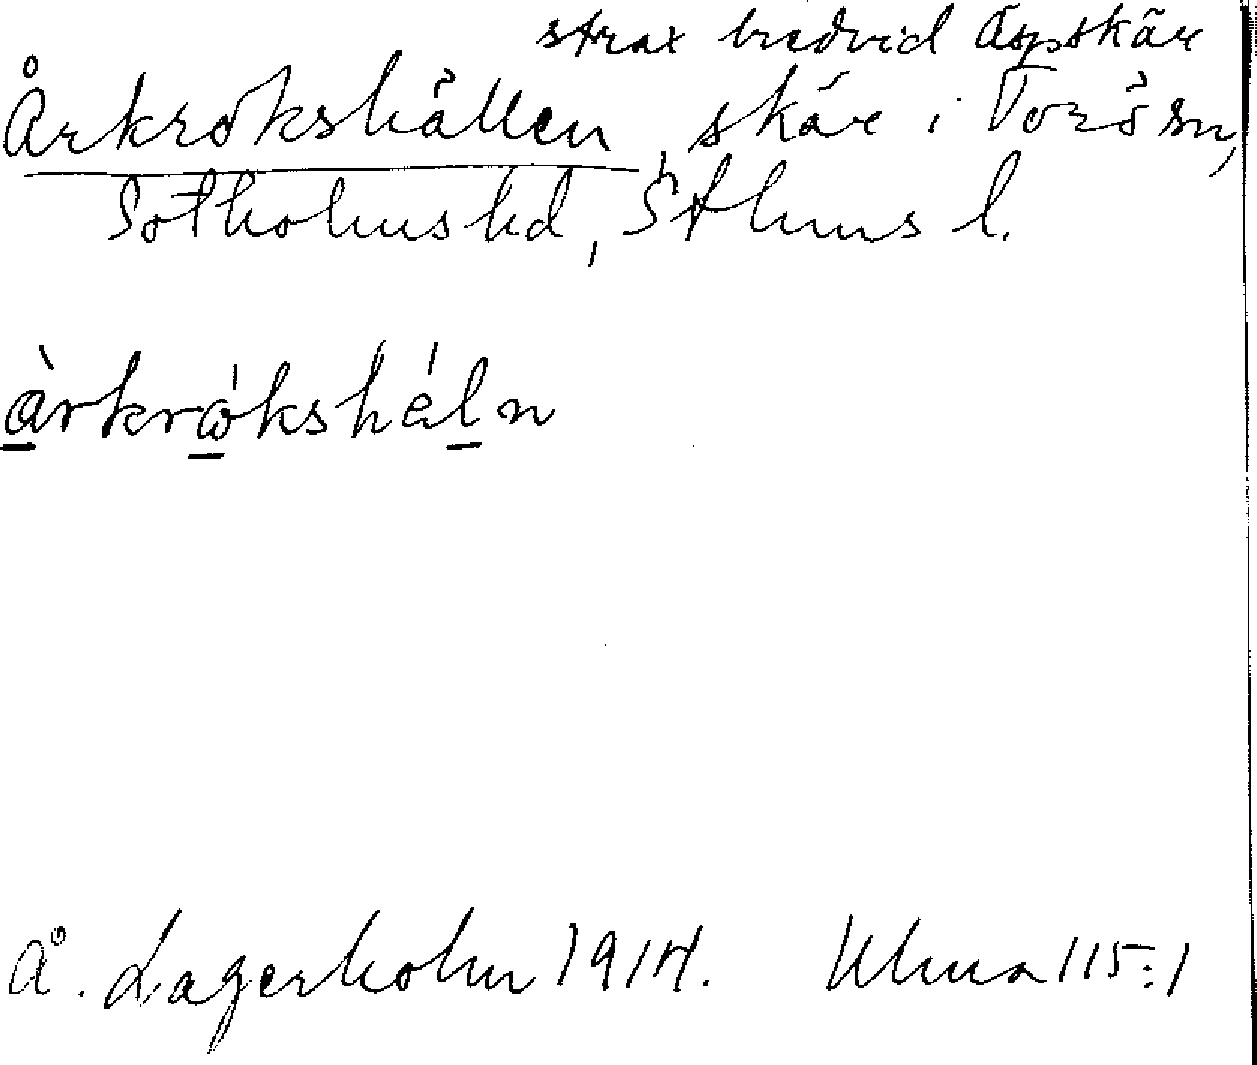 strax bredvid Aspskär
Årkrokshällen, skär i Torö sn,
Sotholms hd, Sthms l.
àrkrω̇kshéln
Å. Lagerholm 1914. Ulma 115:1